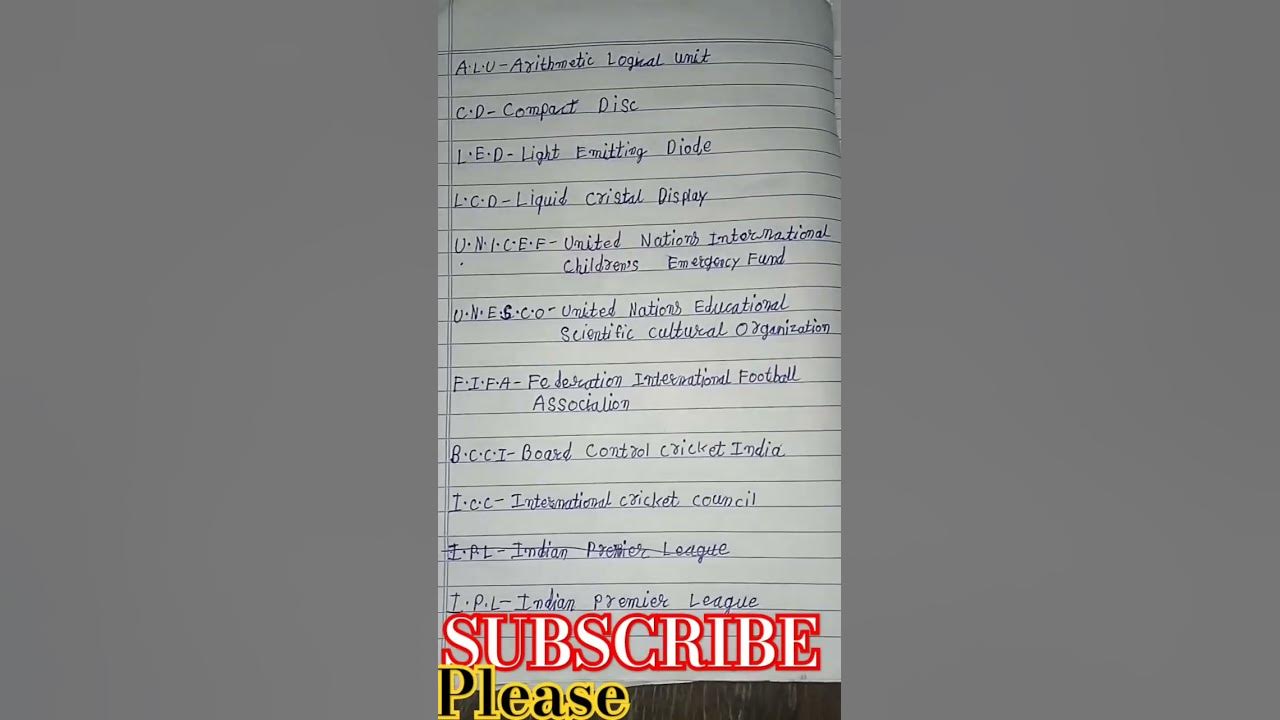 A.L.U-Arithmetic Logical unit
C.D-Compact Disc
L.E.D-Light Emitting Diode
L.C.D-Liquid Cristal Display
U.N.I.C.E.F-United Nations International
Children's Emergency Fund
U.N.E.S.C.O-United Nations Educational
Scientific Cultural Organization
F.I.F.A-Federation International Football
Association
B.C.C.I-Board Control Cricket India
I.C.C-International cricket council
I.P.L-Indian Premier League
I.P.L-Indian Premier League
SUBSCRIBE
Please